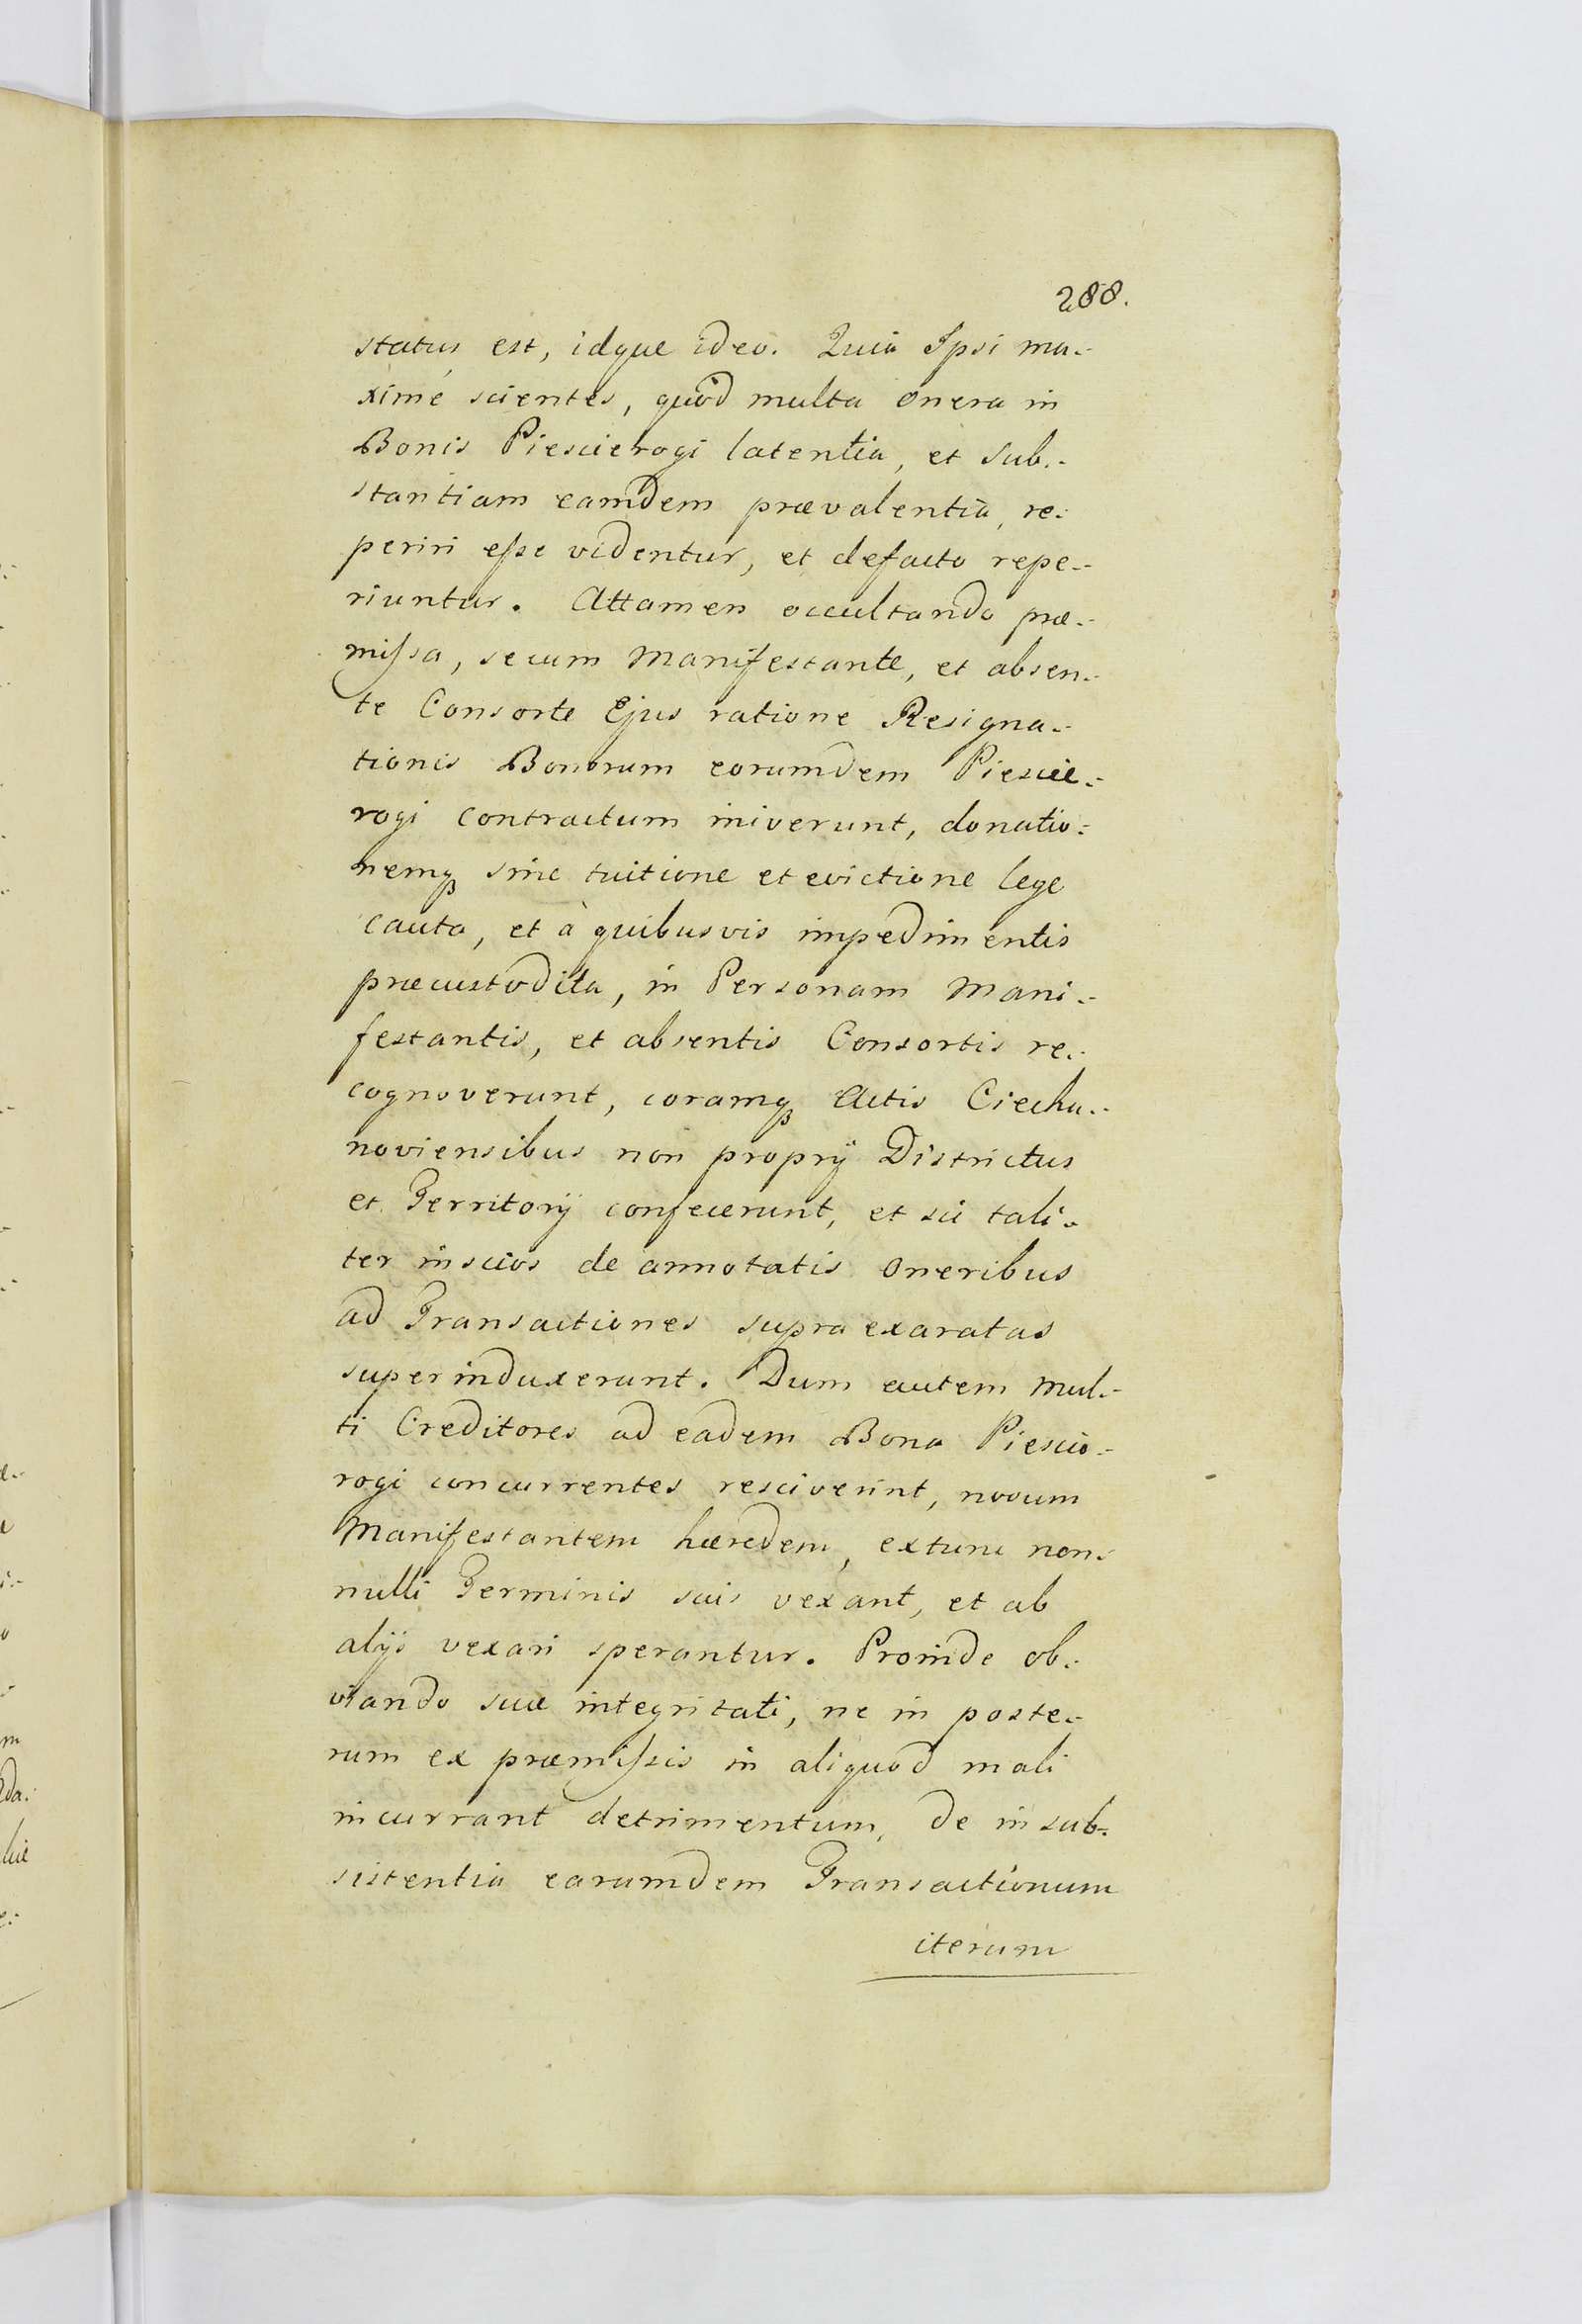 288.
status est, idque ideo. Quia Ipsi ma.-
ximé scientes, quòd multa onera in
Bonis Piescierogi latentia, et Sub.-
stantiam eamdem prævalentia, re.-
periri eſse videntur, et defacto repe.-
riuntur. Attamen occultando præ.-
miſsa, secum Manifestante, et absen.-
te Consorte Ejus ratione Resigna.-
tionis Bonorum eorumdem Piescie.-
rogi contractum iniverunt, donatio.-
nemq́ sine tuitione et evictione lege
cauta, et à quibusvis impedimentis
præcustodita, in Personam Mani.-
festantis, et absentis Consortis re.-
cognoverunt, coramq́ Actis Ciecha.-
noviensibus non proprij Districtus
et Territorij confecerunt, et sic tali.-
ter inscios de annotatis oneribus
ad Transactiones supra exaratas
superinduxerunt. Dum autem Mul.-
ti Creditores ad eadem Bona Piescie.-
rogi concurrentes resciverint, novum
Manifestantem hæredem, extunc non.-
nulli Terminis suis vexant, et ab
alijs vexari sperantur. Proinde ob.-
viando suæ integritati, ne in poste.-
rum ex præmiſsis in aliquod mali
incurrant detrimentum, de insub.-
sistentia earumdem Transactionum
iterum